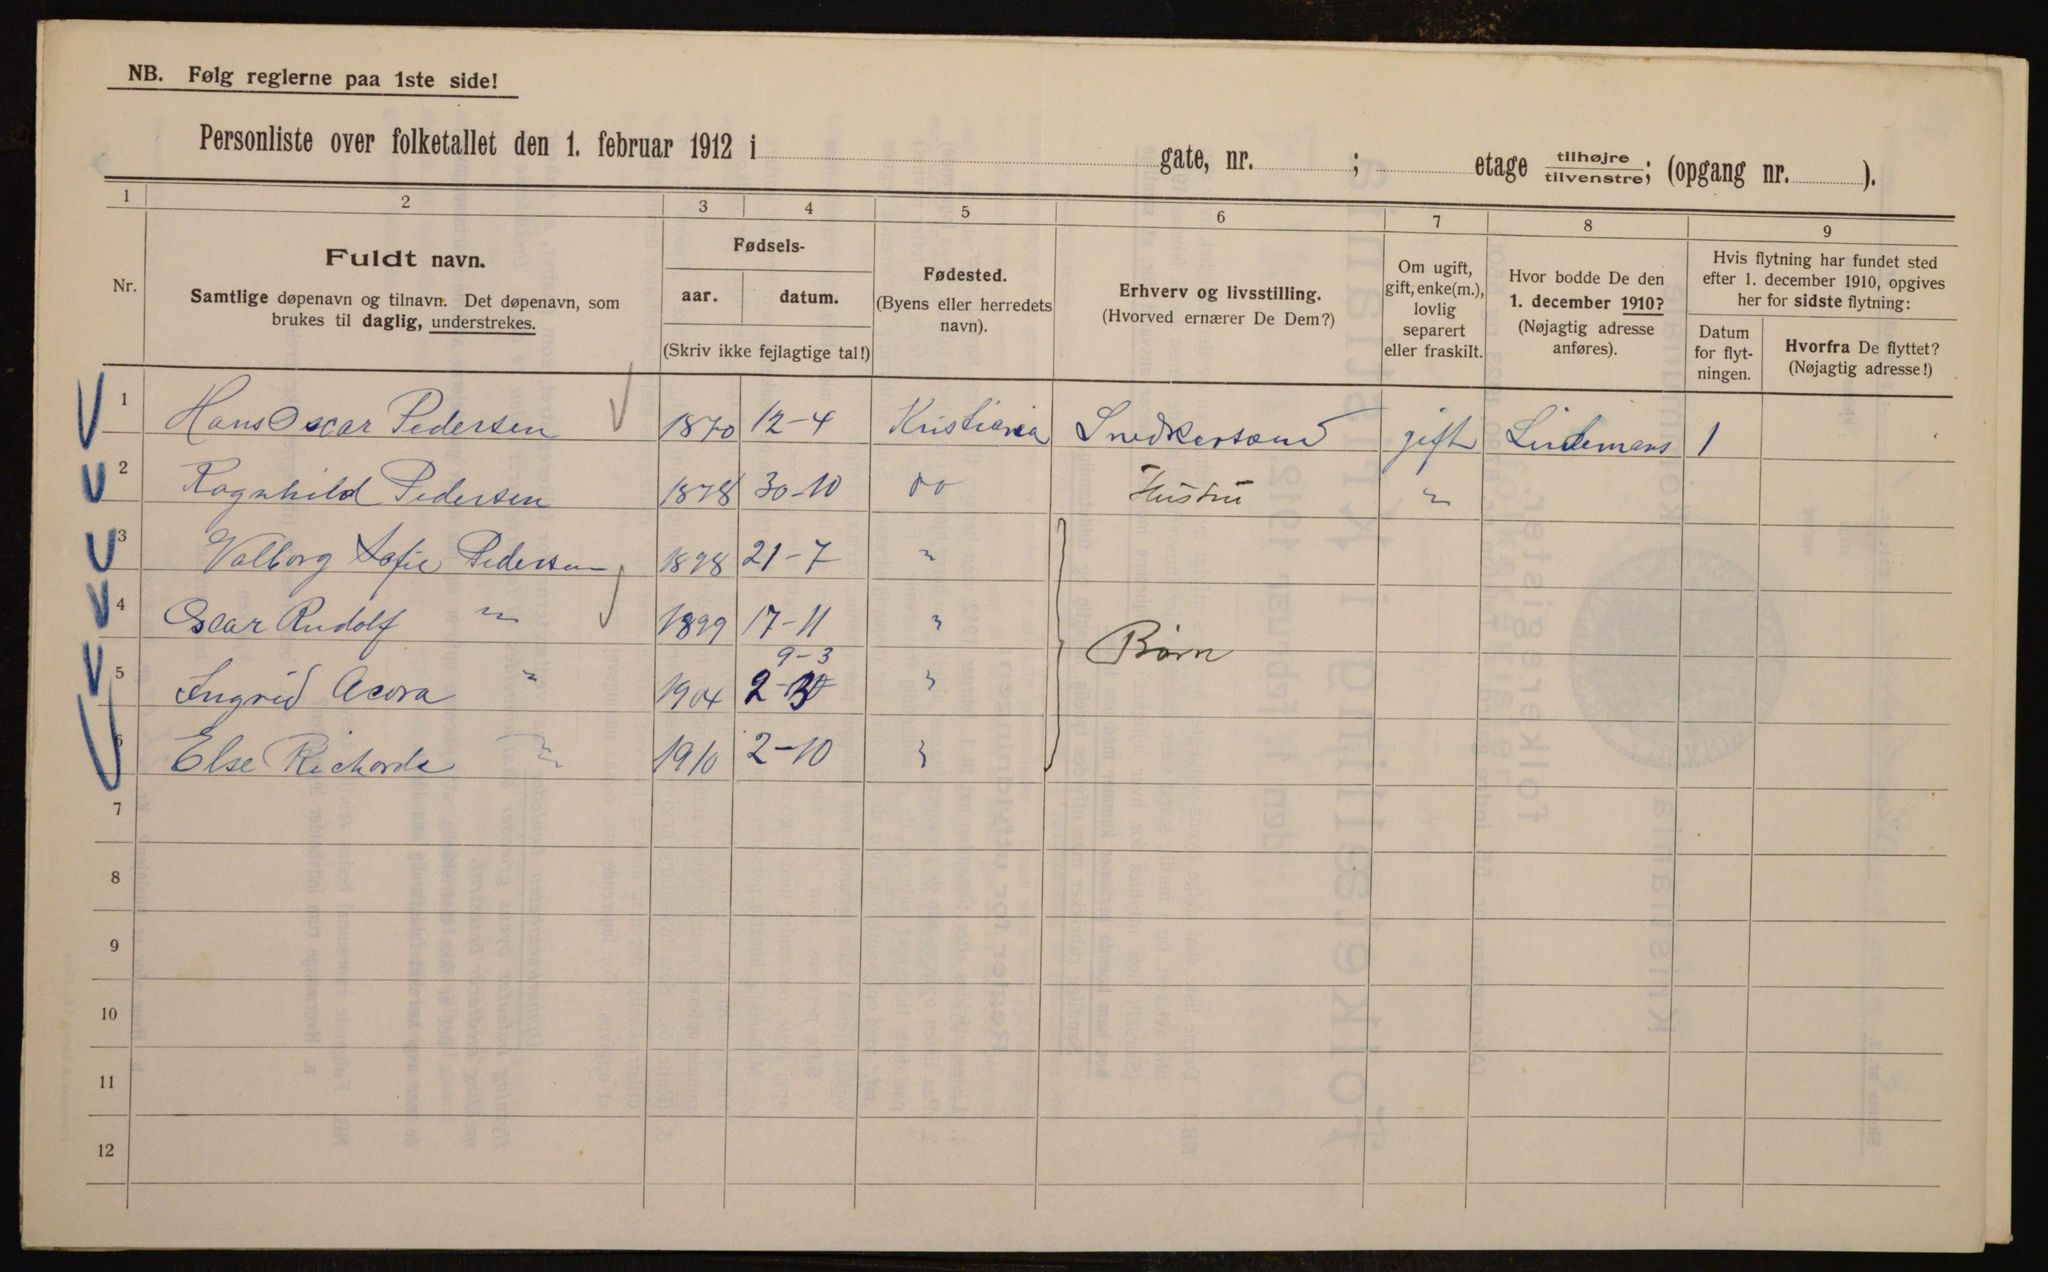 NB. Følg reglerne paa 1ste side!
Personliste over folketallet den 1. februar 1912 i gate, nr. ; etage tilhøjre tilvenstre; (opgang nr. ).
1 2 3 4 5 6 7 8 9
Nr.
Fuldt navn.
Samtlige døpenavn og tilnavn. Det døpenavn, som
brukes til daglig, understrekes.
Fødsels-
aar. datum.
(Skriv ikke fejlagtige tal!)
Fødested.
(Byens eller herredets
navn).
Erhverv og livsstilling.
(Hvorved ernærer De Dem?)
Om ugift,
gift, enke(m.),
lovlig
separert
eller fraskilt.
Hvor bodde De den
1. december 1910?
(Nøjagtig adresse
anføres).
Hvis flytning har fundet sted
efter 1. december 1910, opgives
her for sidste flytning:
Datum
for flyt-
ningen.
Hvorfra De flyttet?
(Nøjagtig adresse!)
1 Hans Oscar Pedersen 1870 12-4 Kristiania Snedkersvend gift Lindemans 1
2 Ragnhild Pedersen 1878 30-10 do Hustru "
3 Valborg Sofie Pedersen 1898 21-7 "
4 Oscar Rudolf " 1899 17-11 "
Børn
9-3
5 Ingrid " 1904 "
6 Else " 1910 2-10 "
7
8
9
10
11
12